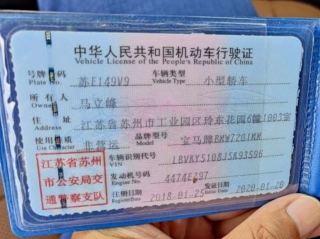 中华人民共和国机动车行驶证
Vehicle License of the People's Republic of China
号牌号码 苏E149V9 车辆类型 小型轿车
Plate No. Vehicle Type
所有人 马立峰
Owner
住址 江苏省苏州市工业园区玲东花园6幢1003室
Address
使用性质 非营运 品牌型号 宝马牌BMW7201MM
Use Character Model
江苏省苏州市公安局交通警察支队
车辆识别代号
VIN
发动机号码
Engine No.
注册日期 2018-01-25 发证日期 2020-01-20
Register Date Issue Date